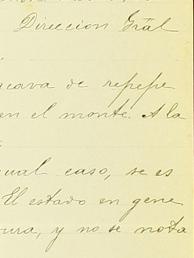 Direccion Gral
de repepe
en el monte. A la
caso, se es
El estado en gene
y no se nota